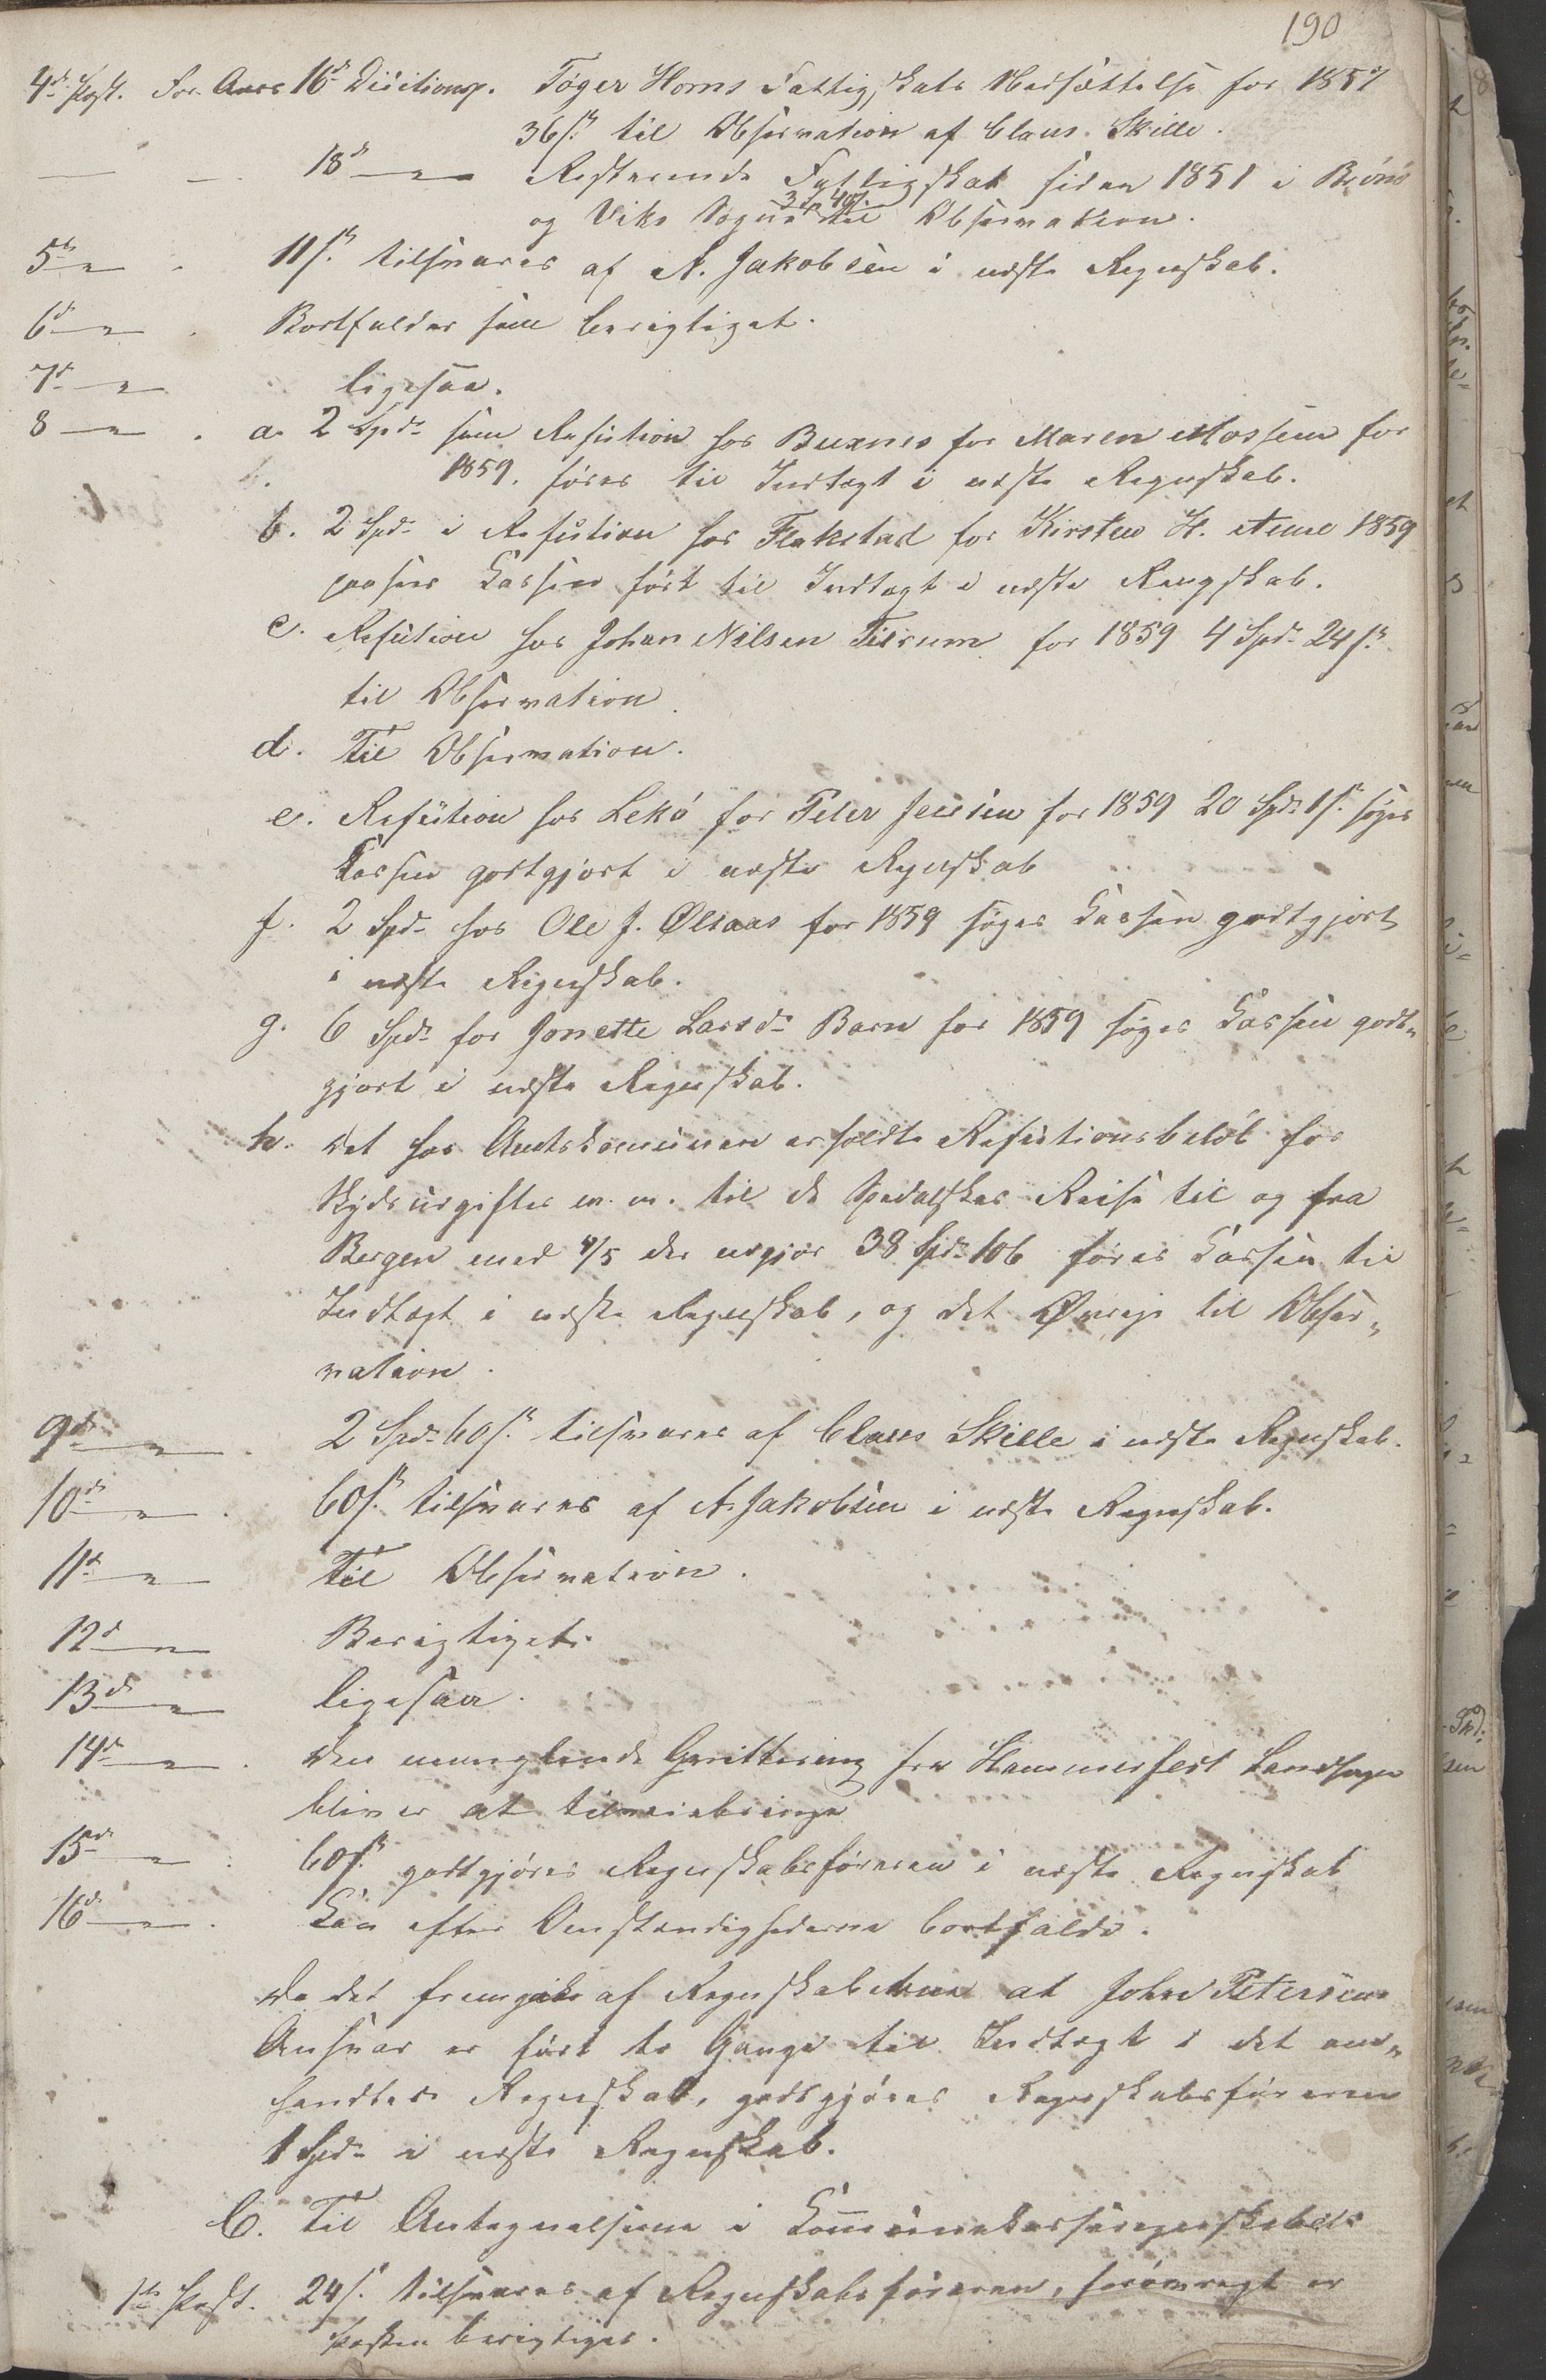 190
4de Post. For Aars 16de Decisionsp. Töger Horns Fattigskats Nedsættelse for 1857
36 sk til Observation af Claus Skille.
18de — " — Resterende Fattigskat siden 1851 i Brönö
3 Spd 40 s.
og Viks Sogne til Observation.
5te — " — 11 s. tilsvares af A. Jakobsen i næste Regnskab.
6te — " — Bortfalder som berigtiget.
7de — " — ligesaa.
8 — " — . a. 2 Spd. som Refusion hos Buxnes for Maren for
1859. föres til Indtægt i næste Regnskab.
b. 2 Spd. i Refusion hos Flakstad for Kirsten H. 1859
Cassen fört til Indtægt i næste Rengskab.
c. Refusion hos Johan Nilsen Tilrum for 1859 4 Spd. 24 s.
til Observation.
d. Til Observation.
e. Refusion hos Lekö for Peter Jensen for 1859 20 Spd. 1 s. söges
Cassen godtgjort i næste Regnskab
f. 2 Spd. hos Ole J. Ølsaas for 1859 söges Cassen godtgjort
i næste Regnskab.
g. 6 Spd. for Jonette Larsd. Barn for 1859 söges Cassen godt„
gjort i næste Regnskab.
h. Det hos Amtskommunen erholdte Refusionsbelöb for
Skydsudgifter m. m. til de Spedalskes Reise til og fra
Bergen med 4/5 der udgjör 38 Spd. 106 föres Cassen til
Indtægt i næste Regnskab, og det Øvrige til Obser„
vation.
9de — " — . 2 Spd. 60 s. tilsvares af Claus Skille i næste Regnskab.
10de — " — . 60 s. tilsvares af A. Jakobsen i næste Regnskab.
11te — " — Til Observation.
12te — " — Berigtiget.
13de — " — ligesaa.
14de — " — . Den manglende Qvittering fra Hammerfest Landsogn
bliver at tilveiebringe
15de — " — . 60 s. godtgjöres Regnskabsföreren i næste Regnskab
16de — " — . Kan efter Omstændighederne bortfalde.
Da det fremgik af Regnskaberne at John Petersens
Ansvar er fört to Gange til Indtægt i det om„
handlede Regnskab, godtgjöres Regnskabsföreren
1 Spd. i næste Regnskab.
C. Til Antegnelserne i Communekasseregnskabet
1te Post. 24 s. tilsvares af Regnskabsföreren, forövrigt er
Posten berigtiget.